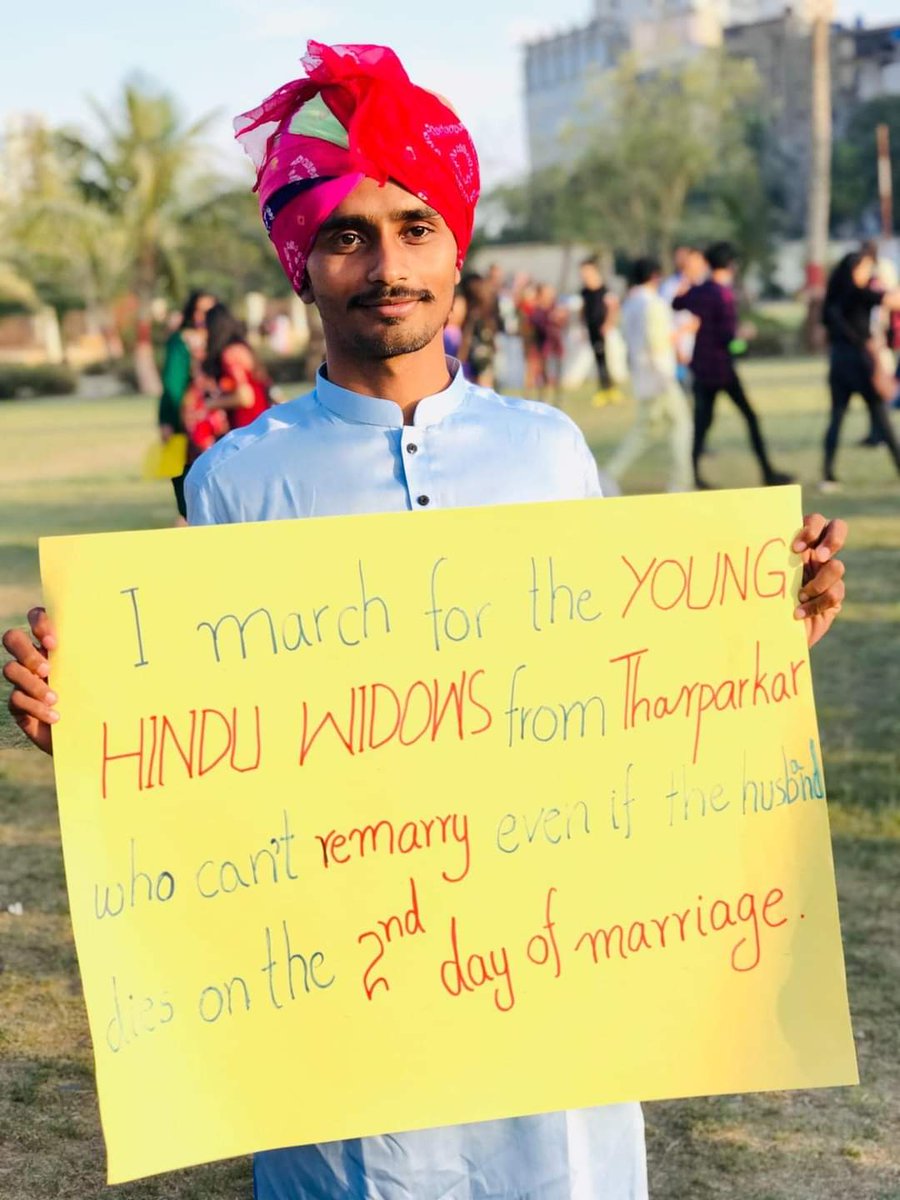 I march for the YOUNG
HINDU WIDOWS from Tharparkar
who can't remarry even if the husband
dies on the 2nd day of marriage.